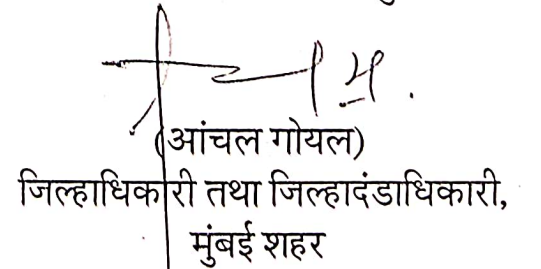 (आंचल गोयल)
जिल्हाधिकारी तथा जिल्हादंडाधिकारी,
मुंबई शहर